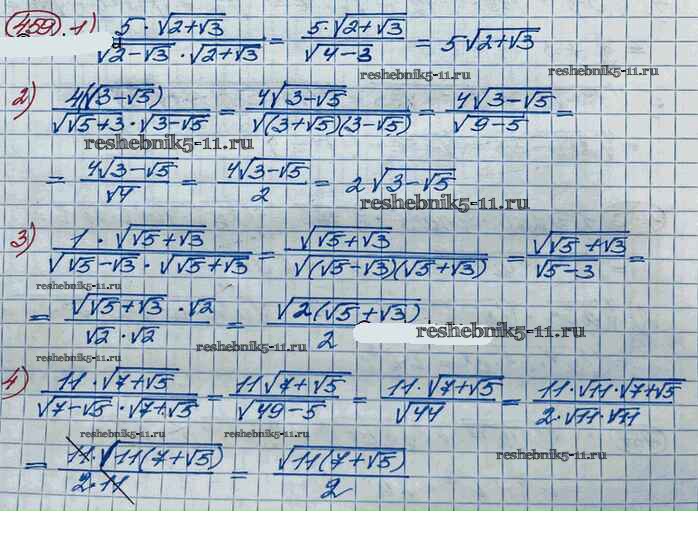 459. 1) 5·√(2+√3) / √(2-√3)·√(2+√3) = 5·√(2+√3) / √(4-3) = 5√(2+√3)
reshebnik5-11.ru reshebnik5-11.ru
2) 4(√(3-√5)) / √(√5+3)·√(3-√5) = 4√(3-√5) / √((3+√5)(3-√5)) = 4√(3-√5) / √(9-5) =
reshebnik5-11.ru
= 4√(3-√5) / √4 = 4√(3-√5) / 2 = 2√(3-√5)
reshebnik5-11.ru
3) 1·√(√5+√3) / √(√5-√3)·√(√5+√3) = √(√5+√3) / √((√5-√3)(√5+√3)) = √(√5+√3) / √(5-3) =
reshebnik5-11.ru
= √(√5+√3)·√2 / √2·√2 = √(2(√5+√3)) / 2
reshebnik5-11.ru
reshebnik5-11.ru
reshebnik5-11.ru
4) 11·√(7+√5) / √(7-√5)·√(7+√5) = 11√(7+√5) / √(49-5) = 11·√(7+√5) / √44 = 11·√11·√(7+√5) / 2·√11·√11
reshebnik5-11.ru reshebnik5-11.ru reshebnik5-11.ru
= 11·√(11(7+√5)) / 2·11 = √(11(7+√5)) / 2